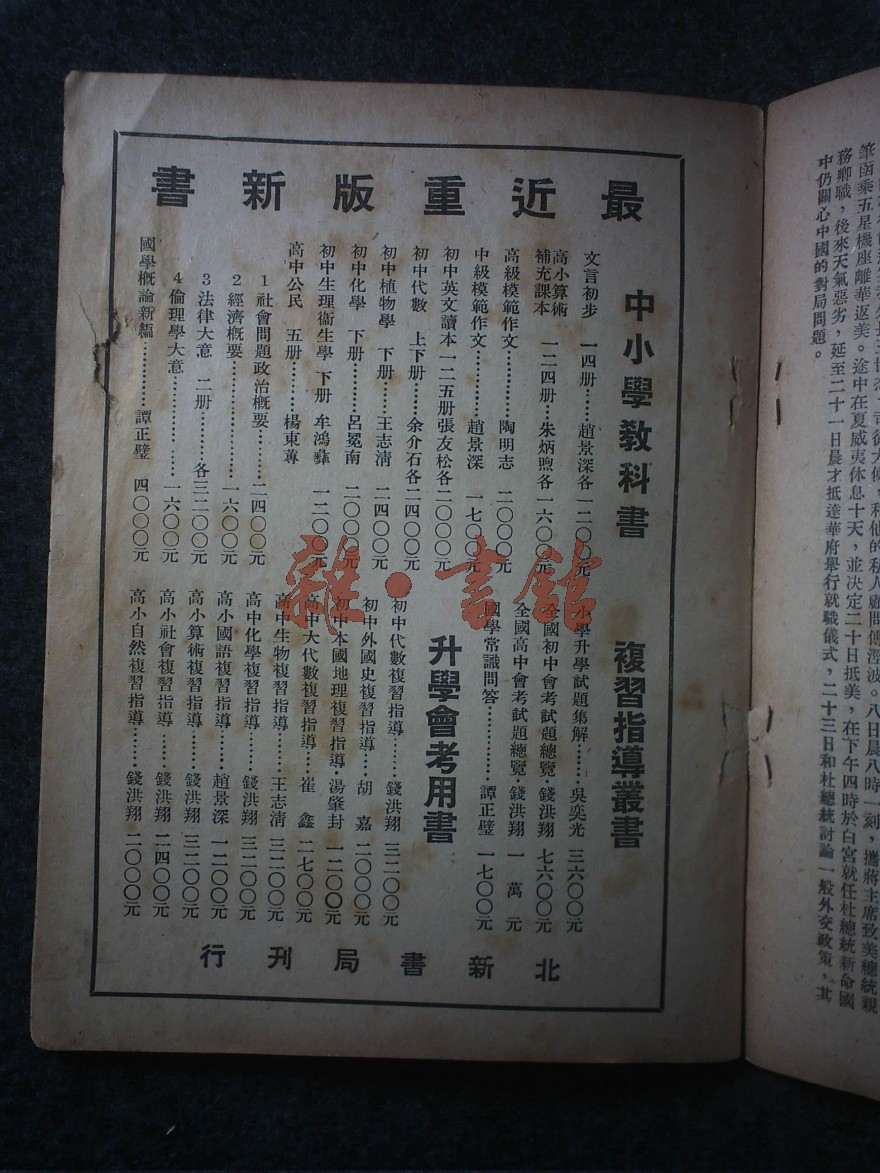 最近重版新書
中小學教科書
文言初步 一四册………趙景深各一二〇〇元
高小算術
補充課本 一二四册…朱炳煦各一六〇〇元
高級模範作文…………陶明志 二〇〇〇元
中級模範作文…………趙景深 一七〇〇元
初中英文讀本一二五册張友松各二〇〇〇元
初中代數 上下册……余介石各二四〇〇元
初中植物學 下册……王志清 二四〇〇元
初中化學 下册………呂冕南 二〇〇〇元
初中生理衞生學 下册 牟鴻彝 一二〇〇元
高中公民 五册………楊東蓴
1 社會問題政治槪要…………二四〇〇元
2 經濟槪要……………………一六〇〇元
3 法律大意 二册………各三二〇〇元
4 倫理學大意…………………一六〇〇元
國學槪論新編…………譚正璧 四〇〇〇元
複習指導叢書
小學升學試題集解……吳奕光 三六〇〇元
全國初中會考試題總覽·錢洪翔 七六〇〇元
全國高中會考試題總覽·錢洪翔 一萬元
國學常識問答…………譚正璧 一七〇〇元
升學會考用書
初中代數複習指導……錢洪翔 三二〇〇元
初中外國史複習指導…胡嘉 二〇〇〇元
初中本國地理複習指導·湯肇封 一二〇〇元
高中大代數複習指導…崔鑫 二七〇〇元
高中生物複習指導……王志淸 三二〇〇元
高中化學複習指導……錢洪翔 三二〇〇元
高小國語複習指導……趙景深 一二〇〇元
高小算術複習指導……錢洪翔 三二〇〇元
高小社會複習指導……錢洪翔 二四〇〇元
高小自然複習指導……錢洪翔 二〇〇〇元
北新書局刊行
雜·書館
筆函乘五星機座離華返美。途中在夏威夷休息十天，並決定二十日抵美，在下午四時於白宮就任杜總統新命國
務卿職，後來天氣惡劣，延至二十一日晨才抵達華府舉行就職儀式，二十三日和杜總統討論一般外交政策，其
中仍關心中國的對局問題。
和他的私人顧問傅涇波。八日晨八時一刻，攜蔣主席致美總統親